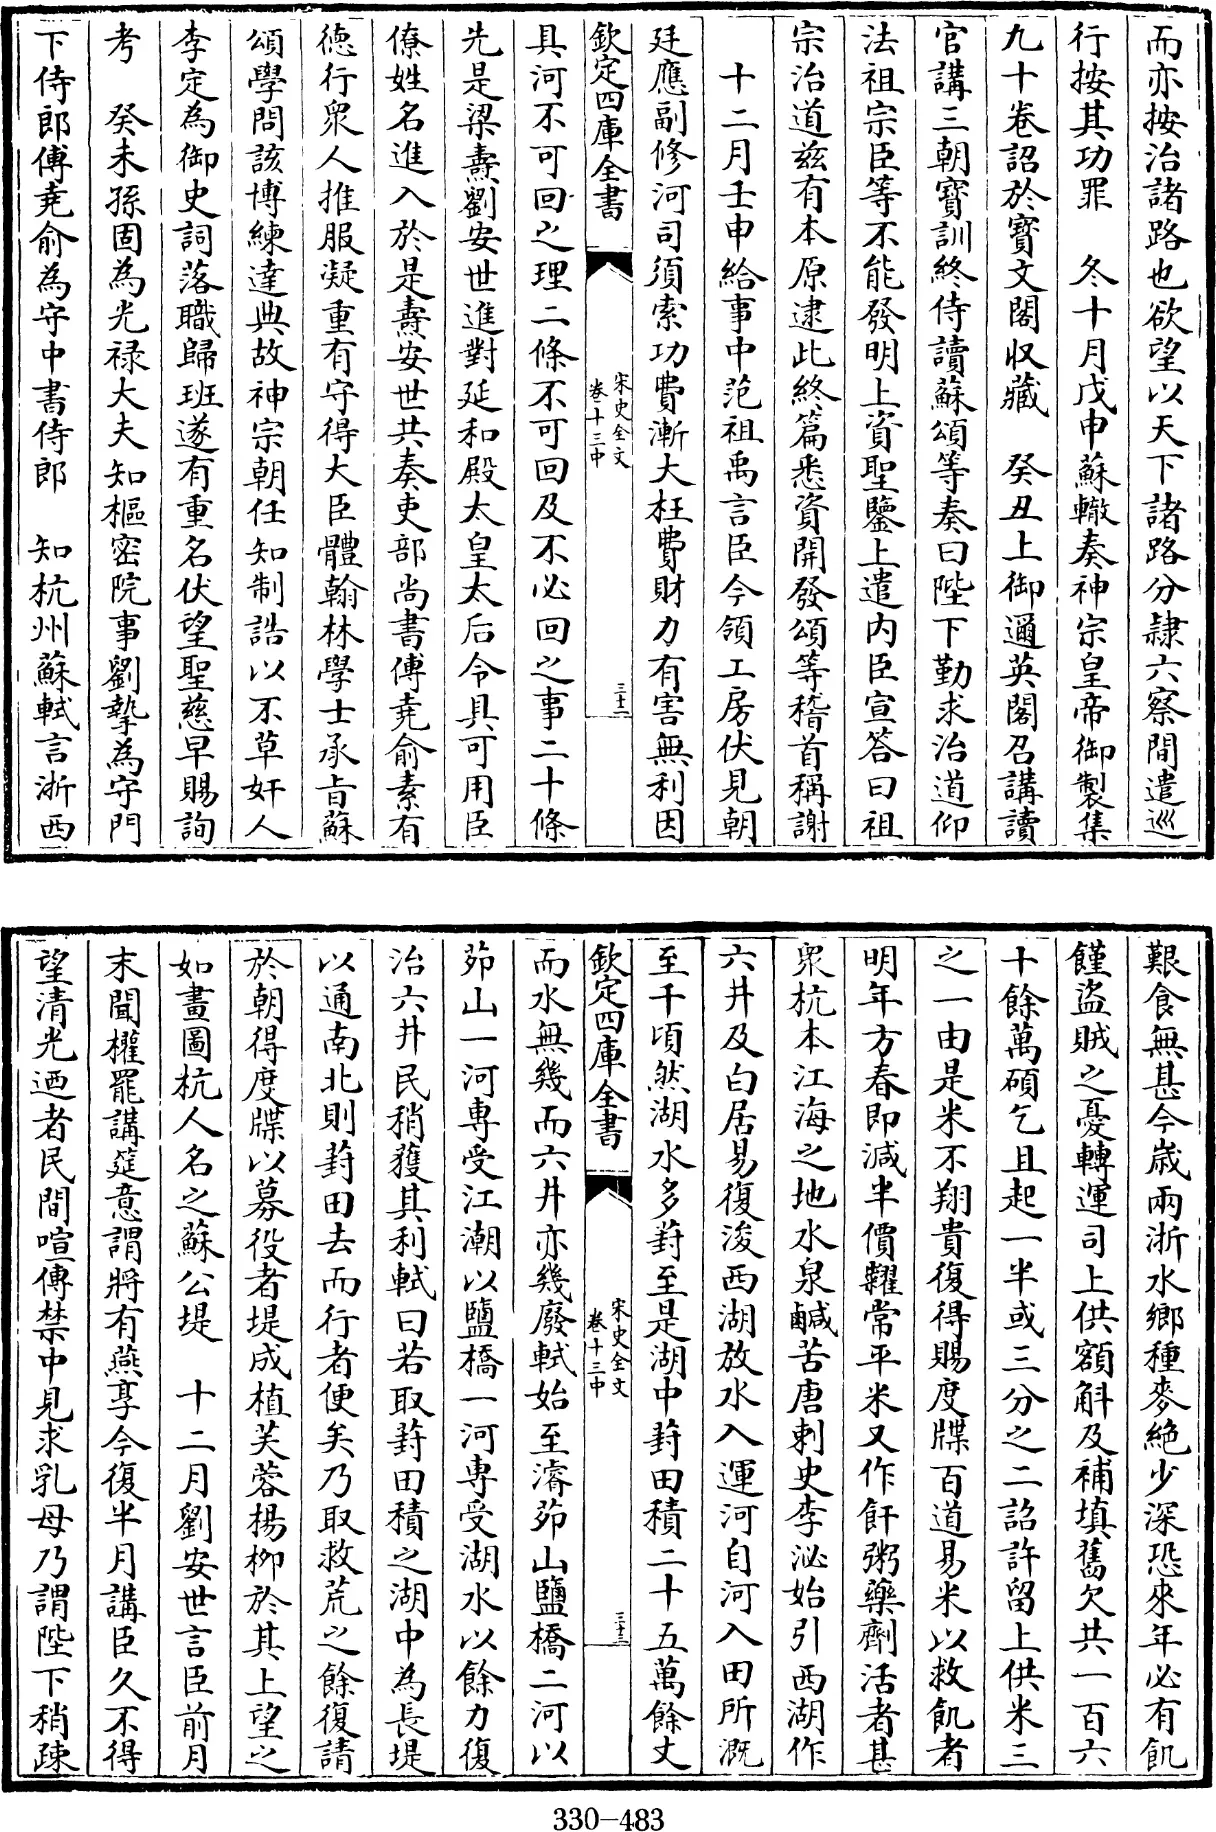 而亦按治諸路也欲望以天下諸路分隷六察間遣巡
行按其功罪　冬十月戊申蘇轍奏神宗皇帝御製集
九十卷詔於寳文閣收藏　癸丑上御邇英閣召講讀
官講三朝寳訓終侍讀蘇頌等奏曰陛下勤求治道仰
法祖宗臣等不能發明上資聖鑒上遣内臣宣答曰祖
宗治道兹有本原逮此終篇悉資開發頌等稽首稱謝
十二月壬申給事中范祖禹言臣今領工房伏見朝
廷應副修河司須索功費漸大枉費財力有害無利因
欽定四庫全書
宋史全文
卷十三中
三十二
具河不可回之理二條不可回及不必回之事二十條
先是梁燾劉安世進對延和殿太皇太后令具可用臣
僚姓名進入於是燾安世共奏吏部尚書傅堯俞素有
德行衆人推服凝重有守得大臣體翰林學士承旨蘇
頌學問該博練達典故神宗朝任知制誥以不草奸人
李定為御史詞落職歸班遂有重名伏望聖慈早賜詢
考　癸未孫固為光禄大夫知樞密院事劉摯為守門
下侍郎傅堯俞為守中書侍郎　知杭州蘇軾言浙西
艱食無甚今歳兩浙水鄉種麥絶少深恐來年必有飢
饉盜賊之憂轉運司上供額斛及補填舊欠共一百六
十餘萬碩乞且起一半或三分之二詔許留上供米三
之一由是米不翔貴復得賜度牒百道易米以救飢者
明年方春即減半價糶常平米又作飦粥藥劑活者甚
衆杭本江海之地水泉鹹苦唐刺史李泌始引西湖作
六井及白居易復浚西湖放水入運河自河入田所溉
至千頃然湖水多葑至是湖中葑田積二十五萬餘丈
欽定四庫全書
宋史全文
卷十三中
三十三
而水無幾而六井亦幾廢軾始至濬茆山鹽橋二河以
茆山一河專受江潮以鹽橋一河專受湖水以餘力復
治六井民稍獲其利軾曰若取葑田積之湖中為長堤
以通南北則葑田去而行者便矣乃取救荒之餘復請
於朝得度牒以募役者堤成植芙蓉楊栁於其上望之
如畫圖杭人名之蘇公堤　十二月劉安世言臣前月
末聞權罷講筵意謂將有燕享今復半月講臣久不得
望清光迺者民間喧傳禁中見求乳母乃謂陛下稍疎
330-483